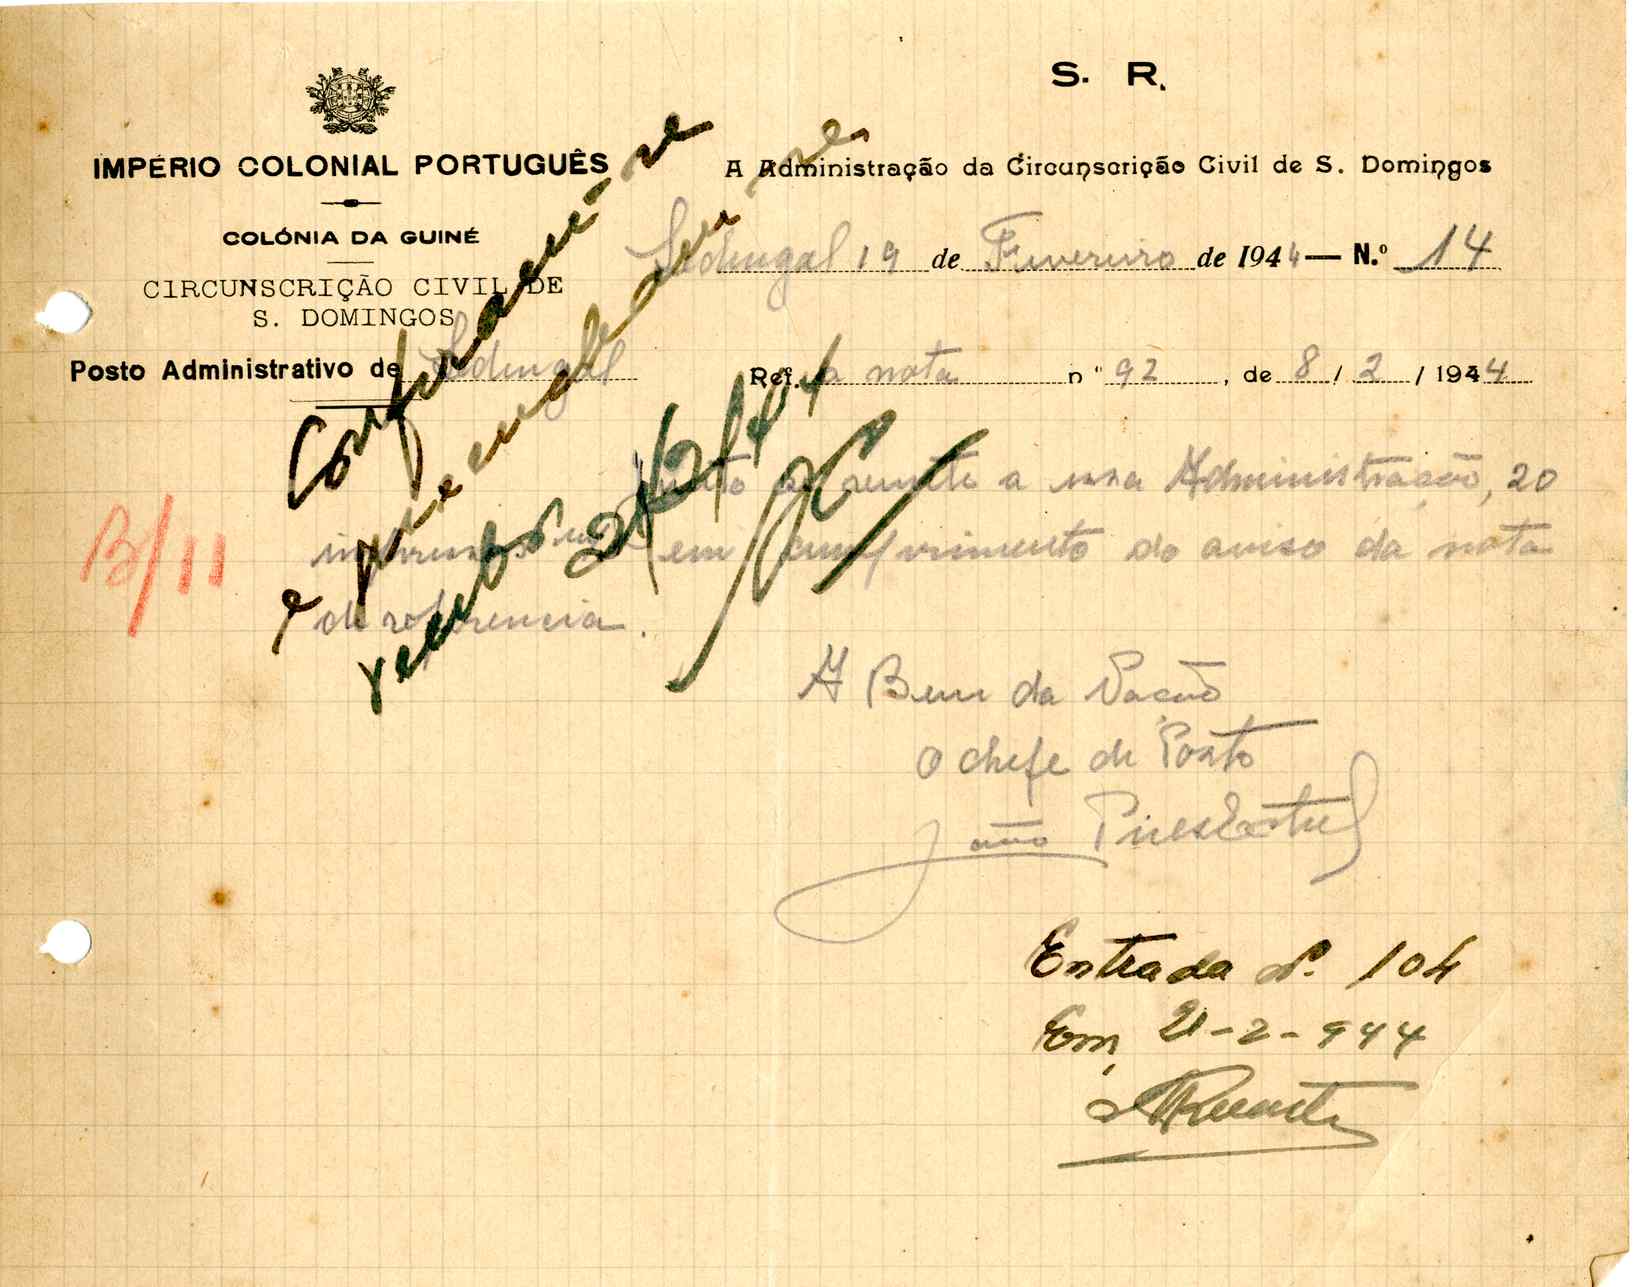 S. R.
IMPÉRIO COLONIAL PORTUGUÊS
COLÓNIA DA GUINÉ
CIRCUNSCRIÇÃO CIVIL DE
S. DOMINGOS
Posto Administrativo de Sedengal
A Administração da Circunscrição Civil de S. Domingos
Sedengal 19 de Fevereiro de 1944 — N.º 14
Ref. a nota n° 92, de 8/2/1944
Junto se remete a essa Administração, 20
impressos em cumprimento do aviso da nota
de referencia.
A Bem da Nação
O chefe de Posto
João Pires
B/11
Confirmem-se
e
recibo 21/2/944
Entrada Nº. 104
Em, 21-2-944